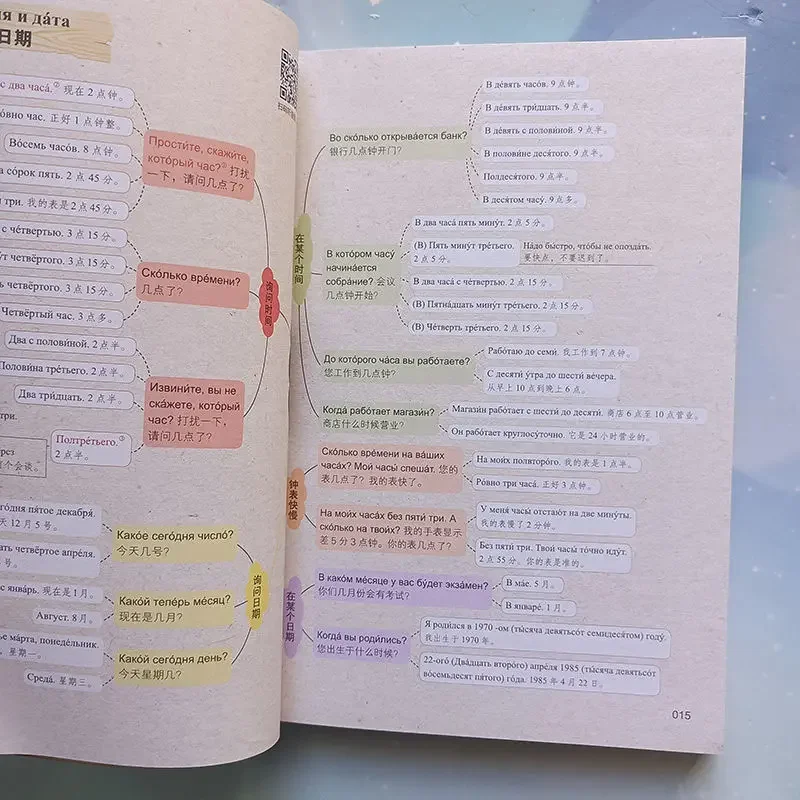 и да́та
日期
с два часа́.② 现在 2 点钟。
час. 正好 1 点钟整。
Во́семь часо́в. 8 点钟。
со́рок пять. 2 点 45 分。
три. 我的表是 2 点 45 分。
с че́твертью. 3 点 15 分。
четвёртого. 3 点 15 分。
четвёртого. 3 点 15 分。
Четвёртый час. 3 点多。
Два с полови́ной. 2 点半。
Полови́на тре́тьего. 2 点半。
Два три́дцать. 2 点半。
три.
Полтре́тьего.③
2 点半。
个会谈。
Прости́те, скажи́те,
кото́рый час?① 打扰
一下，请问几点了?
Ско́лько вре́мени?
几点了?
Извини́те, вы не
ска́жете, кото́рый
час? 打扰一下，
请问几点了?
询问时间
пя́тое декабря́.
12 月 5 号。
четвёртое апре́ля.
号。
янва́рь. 现在是 1 月。
А́вгуст. 8 月。
ма́рта, понеде́льник.
星期一。
Среда́. 星期三。
Како́е сего́дня число́?
今天几号?
Како́й тепе́рь ме́сяц?
现在是几月?
Како́й сего́дня день?
今天星期几?
询问日期
在某个时间
Во ско́лько открыва́ется банк?
银行几点钟开门?
В де́вять часо́в. 9 点钟。
В де́вять три́дцать. 9 点半。
В де́вять с полови́ной. 9 点半。
В полови́не деся́того. 9 点半。
Полдеся́того. 9 点半。
В деся́том часу́. 9 点多。
В кото́ром часу́
начина́ется
собра́ние? 会议
几点钟开始?
В два часа́ пять мину́т. 2 点 5 分。
(В) Пять мину́т тре́тьего.
2 点 5 分。
На́до бы́стро, что́бы не опозда́ть.
要快点，不要迟到了。
В два часа́ с че́твертью. 2 点 15 分。
(В) Пятна́дцать мину́т тре́тьего. 2 点 15 分。
(В) Че́тверть тре́тьего. 2 点 15 分。
До кото́рого ча́са вы рабо́таете?
您工作到几点钟?
Рабо́таю до семи́. 我工作到 7 点钟。
С десяти́ утра́ до шести́ ве́чера.
从早上 10 点到晚上 6 点。
Когда́ рабо́тает магази́н?
商店什么时候营业?
Магази́н рабо́тает с шести́ до десяти́. 商店 6 点至 10 点营业。
Он рабо́тает круглосу́точно. 它是 24 小时营业的。
钟表快慢
Ско́лько вре́мени на ва́ших
часа́х? Мой часы́ спеша́т. 您的
表几点了? 我的表快了。
На мои́х полвторо́го. 我的表是 1 点半。
Ро́вно три часа́. 正好 3 点钟。
На мои́х часа́х без пяти́ три. А
ско́лько на твои́х? 我的手表显示
差 5 分 3 点钟。你的表几点了?
У меня́ часы́ отстаю́т на две мину́ты.
我的表慢了 2 分钟。
Без пяти́ три. Твои́ часы́ то́чно иду́т.
2 点 55 分。你的表是准的。
在某个日期
В како́м ме́сяце у вас бу́дет экза́мен?
你们几月份会有考试?
В ма́е. 5 月。
В январе́. 1 月。
Когда́ вы родили́сь?
您出生于什么时候?
Я роди́лся в 1970 -ом (ты́сяча девятьсо́т семидеся́том) году́.
我出生于 1970 年。
22-ого́ (Два́дцать второ́го) апре́ля 1985 (ты́сяча девятьсо́т
восемьдеся́т пя́того) го́да. 1985 年 4 月 22 日。
015